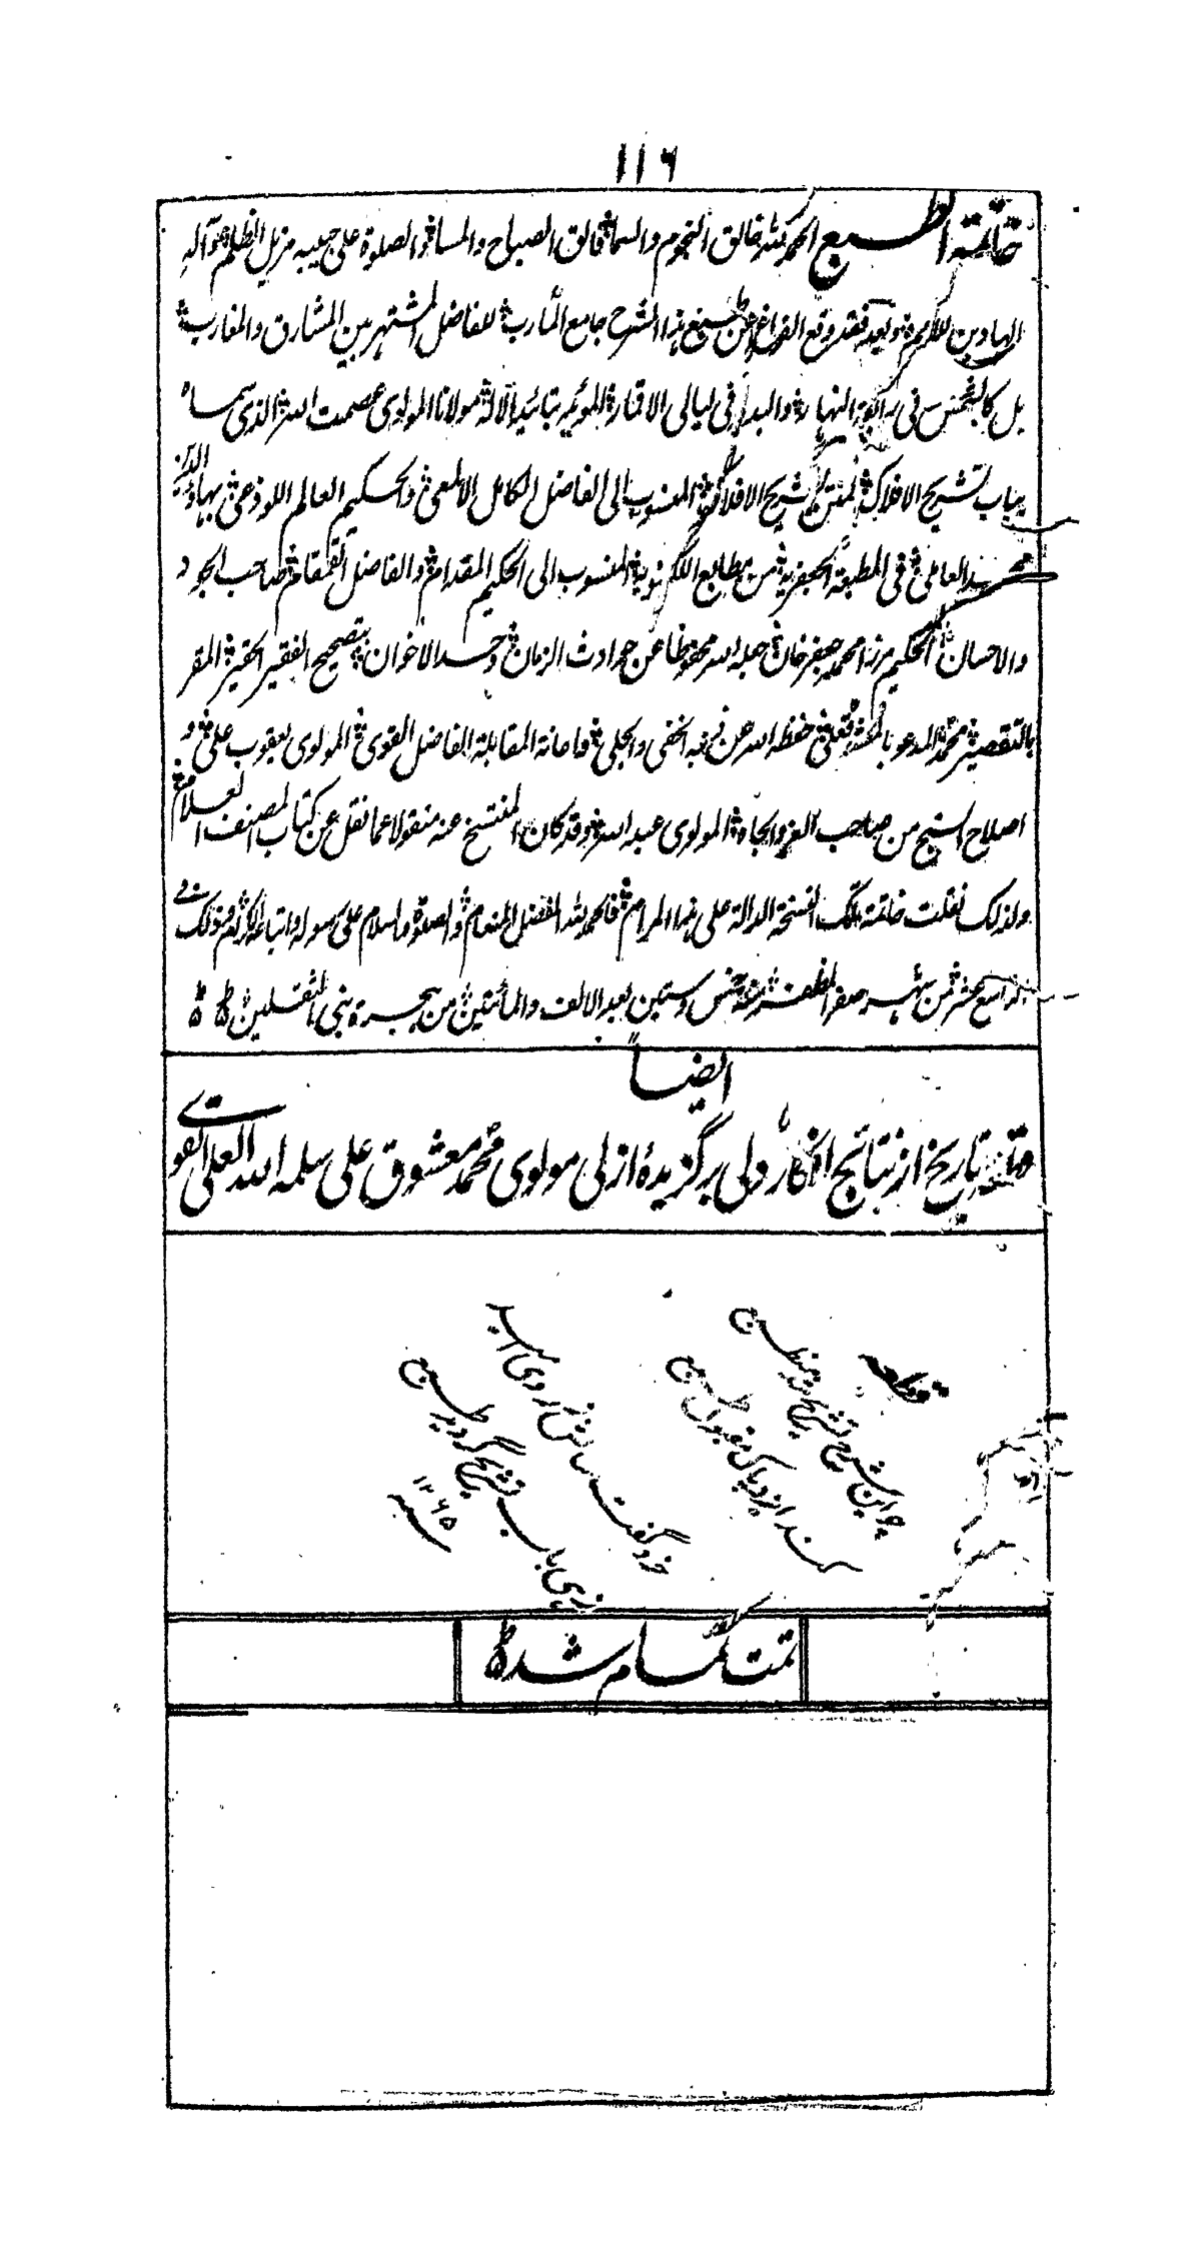 ١١٦
خاتمة الطبع الحمد لله خالق النجوم والسماء فالق الصباح والمساء والصلوة على حبيبه مزيل الظلم وآله
الهادين للامم وبعد فقد وقع الفراغ عن طبع هذا الشرح جامع المآرب للفاضل المشتهر بين المشارق والمغارب
بل كالشمس في النهار والبدر في ليالي الاقمار المؤيد بتائيد الآله مولانا المولوي عصمت الله الذي سماه
بباب تشريح الافلاك لمتن تشريح الافلاك المنسوب الى الفاضل الكامل الالمعي والحكيم العالم اللوذعي بهاء الدين
محمد العاملي في المطبعة الجعفرية من مطابع اللكهنوية المنسوب الى الحكيم المقدام والفاضل القمقام صاحب الجود
والاحسان الحكيم مرزا محمد جعفر خان جعله الله محفوظا عن حوادث الزمان وحسد الاخوان بتصحيح الفقير الحقير المقر
بالتقصير محمد المدعو بالمعشوق علي حفظه الله عن ذنبه الخفي والجلي فاعانة المقابلة الفاضل القوي المولوي يعقوب علي و
اصلاح السنج من صاحب العز والجاه المولوي عبد الله وقد كان المنتسخ عنه منقولا عما نقل عن كتاب المصنف العلام
ولذلك نقلت خاتمة تلك النسخة الدالة على هذا المرام فالحمد لله المفضل المنعام والصلوة والسلام على رسوله واتباعه الكرام وذلك في
التاسع عشر من شهر صفر المظفر سنة خمس وستين بعد الالف والمأتين من هجرة نبي الثقلين
ايضاً
قطعه تاريخ از نتائج افكار ولي برگزيدهٔ ازلي مولوي محمد معشوق علي سلمه الله العلي القوي
قطعه
چو اين شرح تشريح شد منطبع
كند ايزد پاك مقبول طبع
خرد گفت سالش ز روي اميد
زهي باب تشريح گرديد طبع
سنه ١٢٦٥
تمت تمام شد